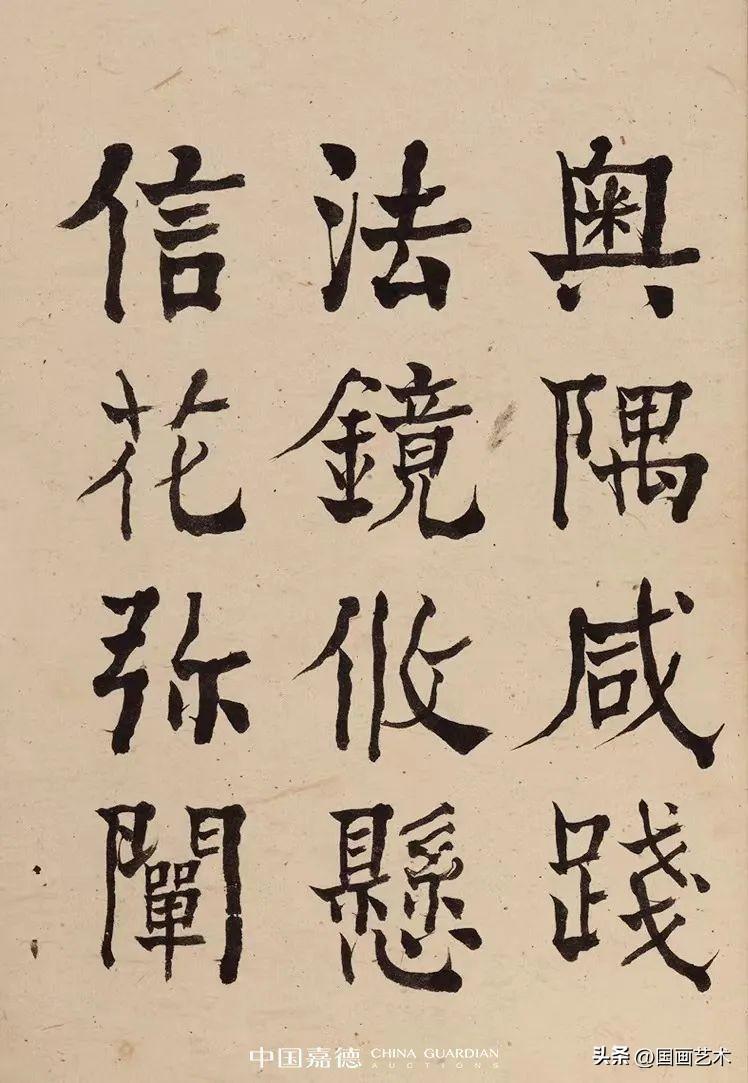 奧隅咸踐
法鏡攸懸
信花弥闡
中国嘉德 CHINA GUARDIAN
AUCTIONS
头条 @国画艺术